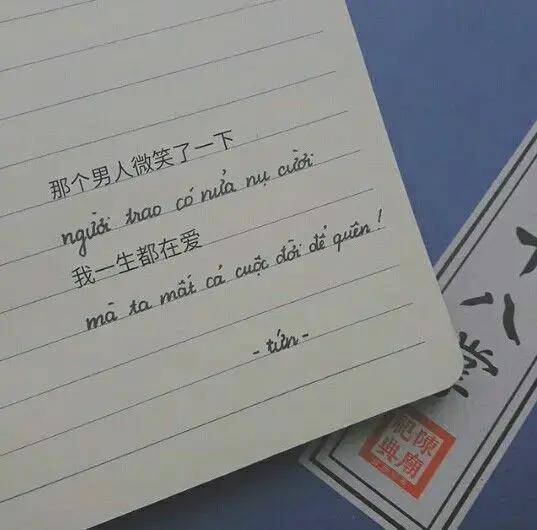 那个男人微笑了一下
người trao có nửa nụ cười
我一生都在爱
mà ta mất cả cuộc đời để quên!
- tưn -
八